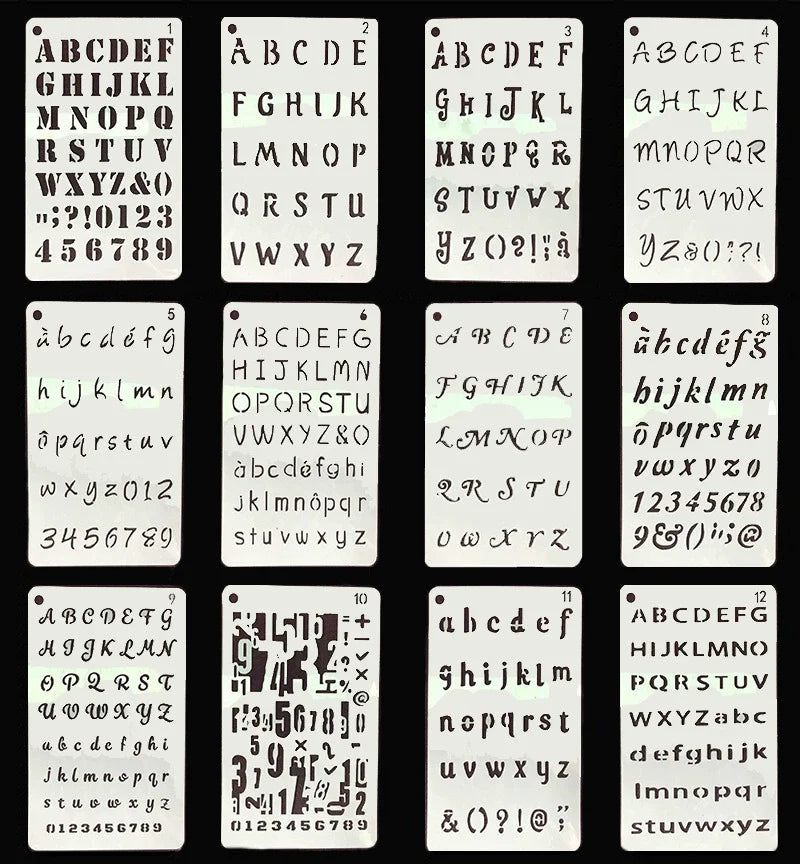 1
ABCDEF
GHIJKL
MNOPQ
RSTUV
WXYZ&()
";?!0123
456789
2
ABCDE
FGHIJK
LMNOP
QRSTU
VWXYZ
3
ABCDEF
GHIJKL
MNOPQR
STUVWX
YZ()?!";à
4
ABCDEF
GHIJKL
MNOPQR
STUVWX
YZ&();?!
5
àbcdéfg
hijklmn
ôpqrstuv
wxyz012
3456789
6
ABCDEFG
HIJKLMN
OPQRSTU
VWXYZ&()
àbcdéfghi
jklmnôpqr
stuvwxyz
7
ABCDE
FGHIJK
LMNOP
QRSTU
VWXYZ
8
àbcdéfg
hijklmn
ôpqrstu
vwxyz()
12345678
9&()";@
9
ABCDEFG
HIJKLMN
OPQRST
UVWXYZ
abcdefghi
jklmnopqr
stuvwxyz
0123456789
10
0123456789
11
abcdef
ghijklm
nopqrst
uvwxyz
&()?!@;"
12
ABCDEFG
HIJKLMNO
PQRSTUV
WXYZabc
defghijk
lmnopqr
stuvwxyz